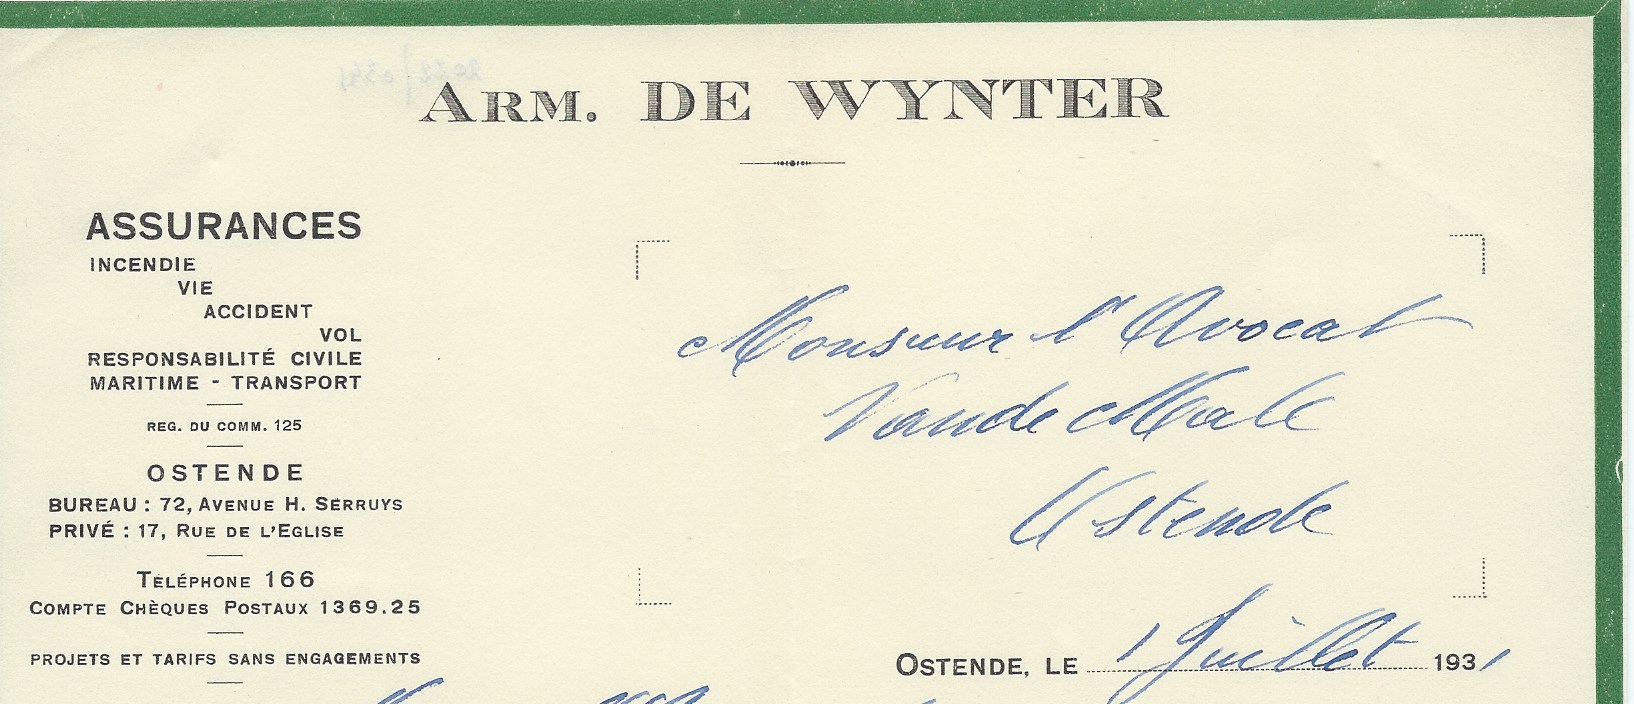 ARM. DE WYNTER
ASSURANCES
INCENDIE
VIE
ACCIDENT
VOL
RESPONSABILITÉ CIVILE
MARITIME - TRANSPORT
REG. DU COMM. 125
OSTENDE
BUREAU : 72, AVENUE H. SERRUYS
PRIVÉ : 17, RUE DE L'EGLISE
TÉLÉPHONE 166
COMPTE CHÈQUES POSTAUX 1369.25
PROJETS ET TARIFS SANS ENGAGEMENTS
Monsieur l'Avocat
Vande Male
Ostende
OSTENDE, LE 1 Juillet 1931